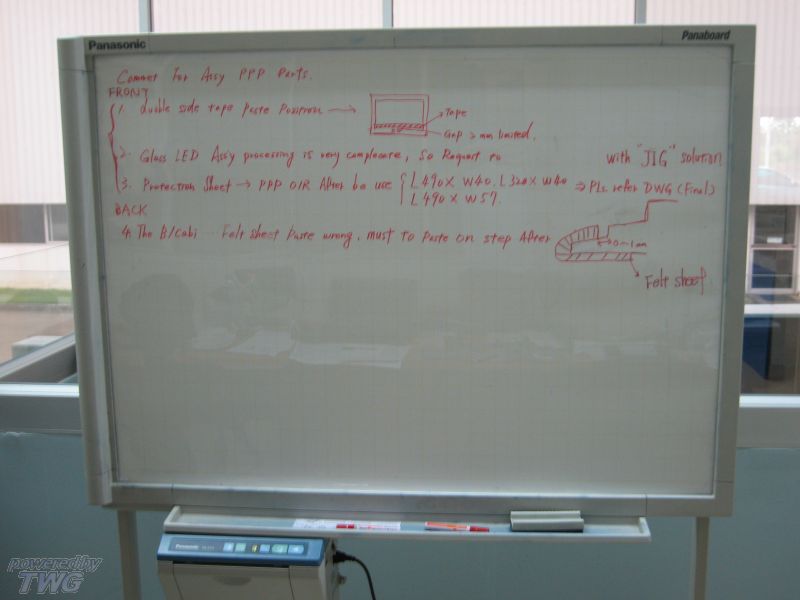 Panasonic
Panaboard
Commet For Assy PPP Parts.
FRONT
1. double side tape paste position →
Tape
Gap > mm limited.
2. Glass LED Ass'y processing is very complecate, So Request to with "JIG" solution
3. Protection Sheet → PPP OIR After be use { L490 X W40. L320 X W40 ⇒ Pls refer DWG (Final)
L490 X W57.
BACK
4. The B/Cabi ... Felt sheet Paste wrong, must to Paste on step After
0~1mm
Felt sheet
Panasonic
powered by
TWG